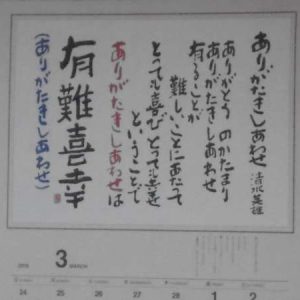 ありがたきしあわせ 清水英雄
ありがとうのかたまり
ありがたきしあわせ
有ることが
難しいことにあたって
とっても喜び とっても幸せ
ということで
ありがたきしあわせは
有難喜幸
(ありがたきしあわせ)
3 MARCH
24 25 26 27 28 1 2